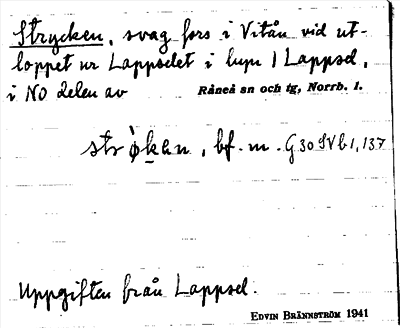 Strycken, svag fors i Vitån vid ut-
loppet ur Lappselet i byn Lappsel,
i NO delen av Råneå sn och tg, Norrb. l.
strøken, bf. m. G30SVb1,137
Uppgiften från Lappsel.
EDVIN BRÄNNSTRÖM 1941